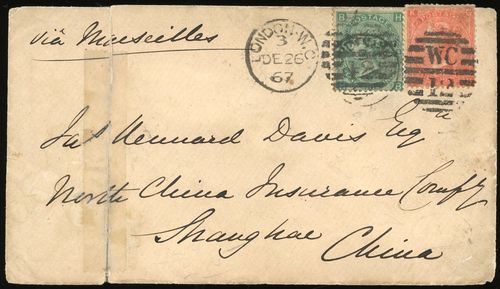 viâ Marseilles
LONDON-W.C
3
DE 26
67
POSTAGE
WC
12
Jas Hennard Davis Esqre
North China Insurance Compy
Shanghae
China